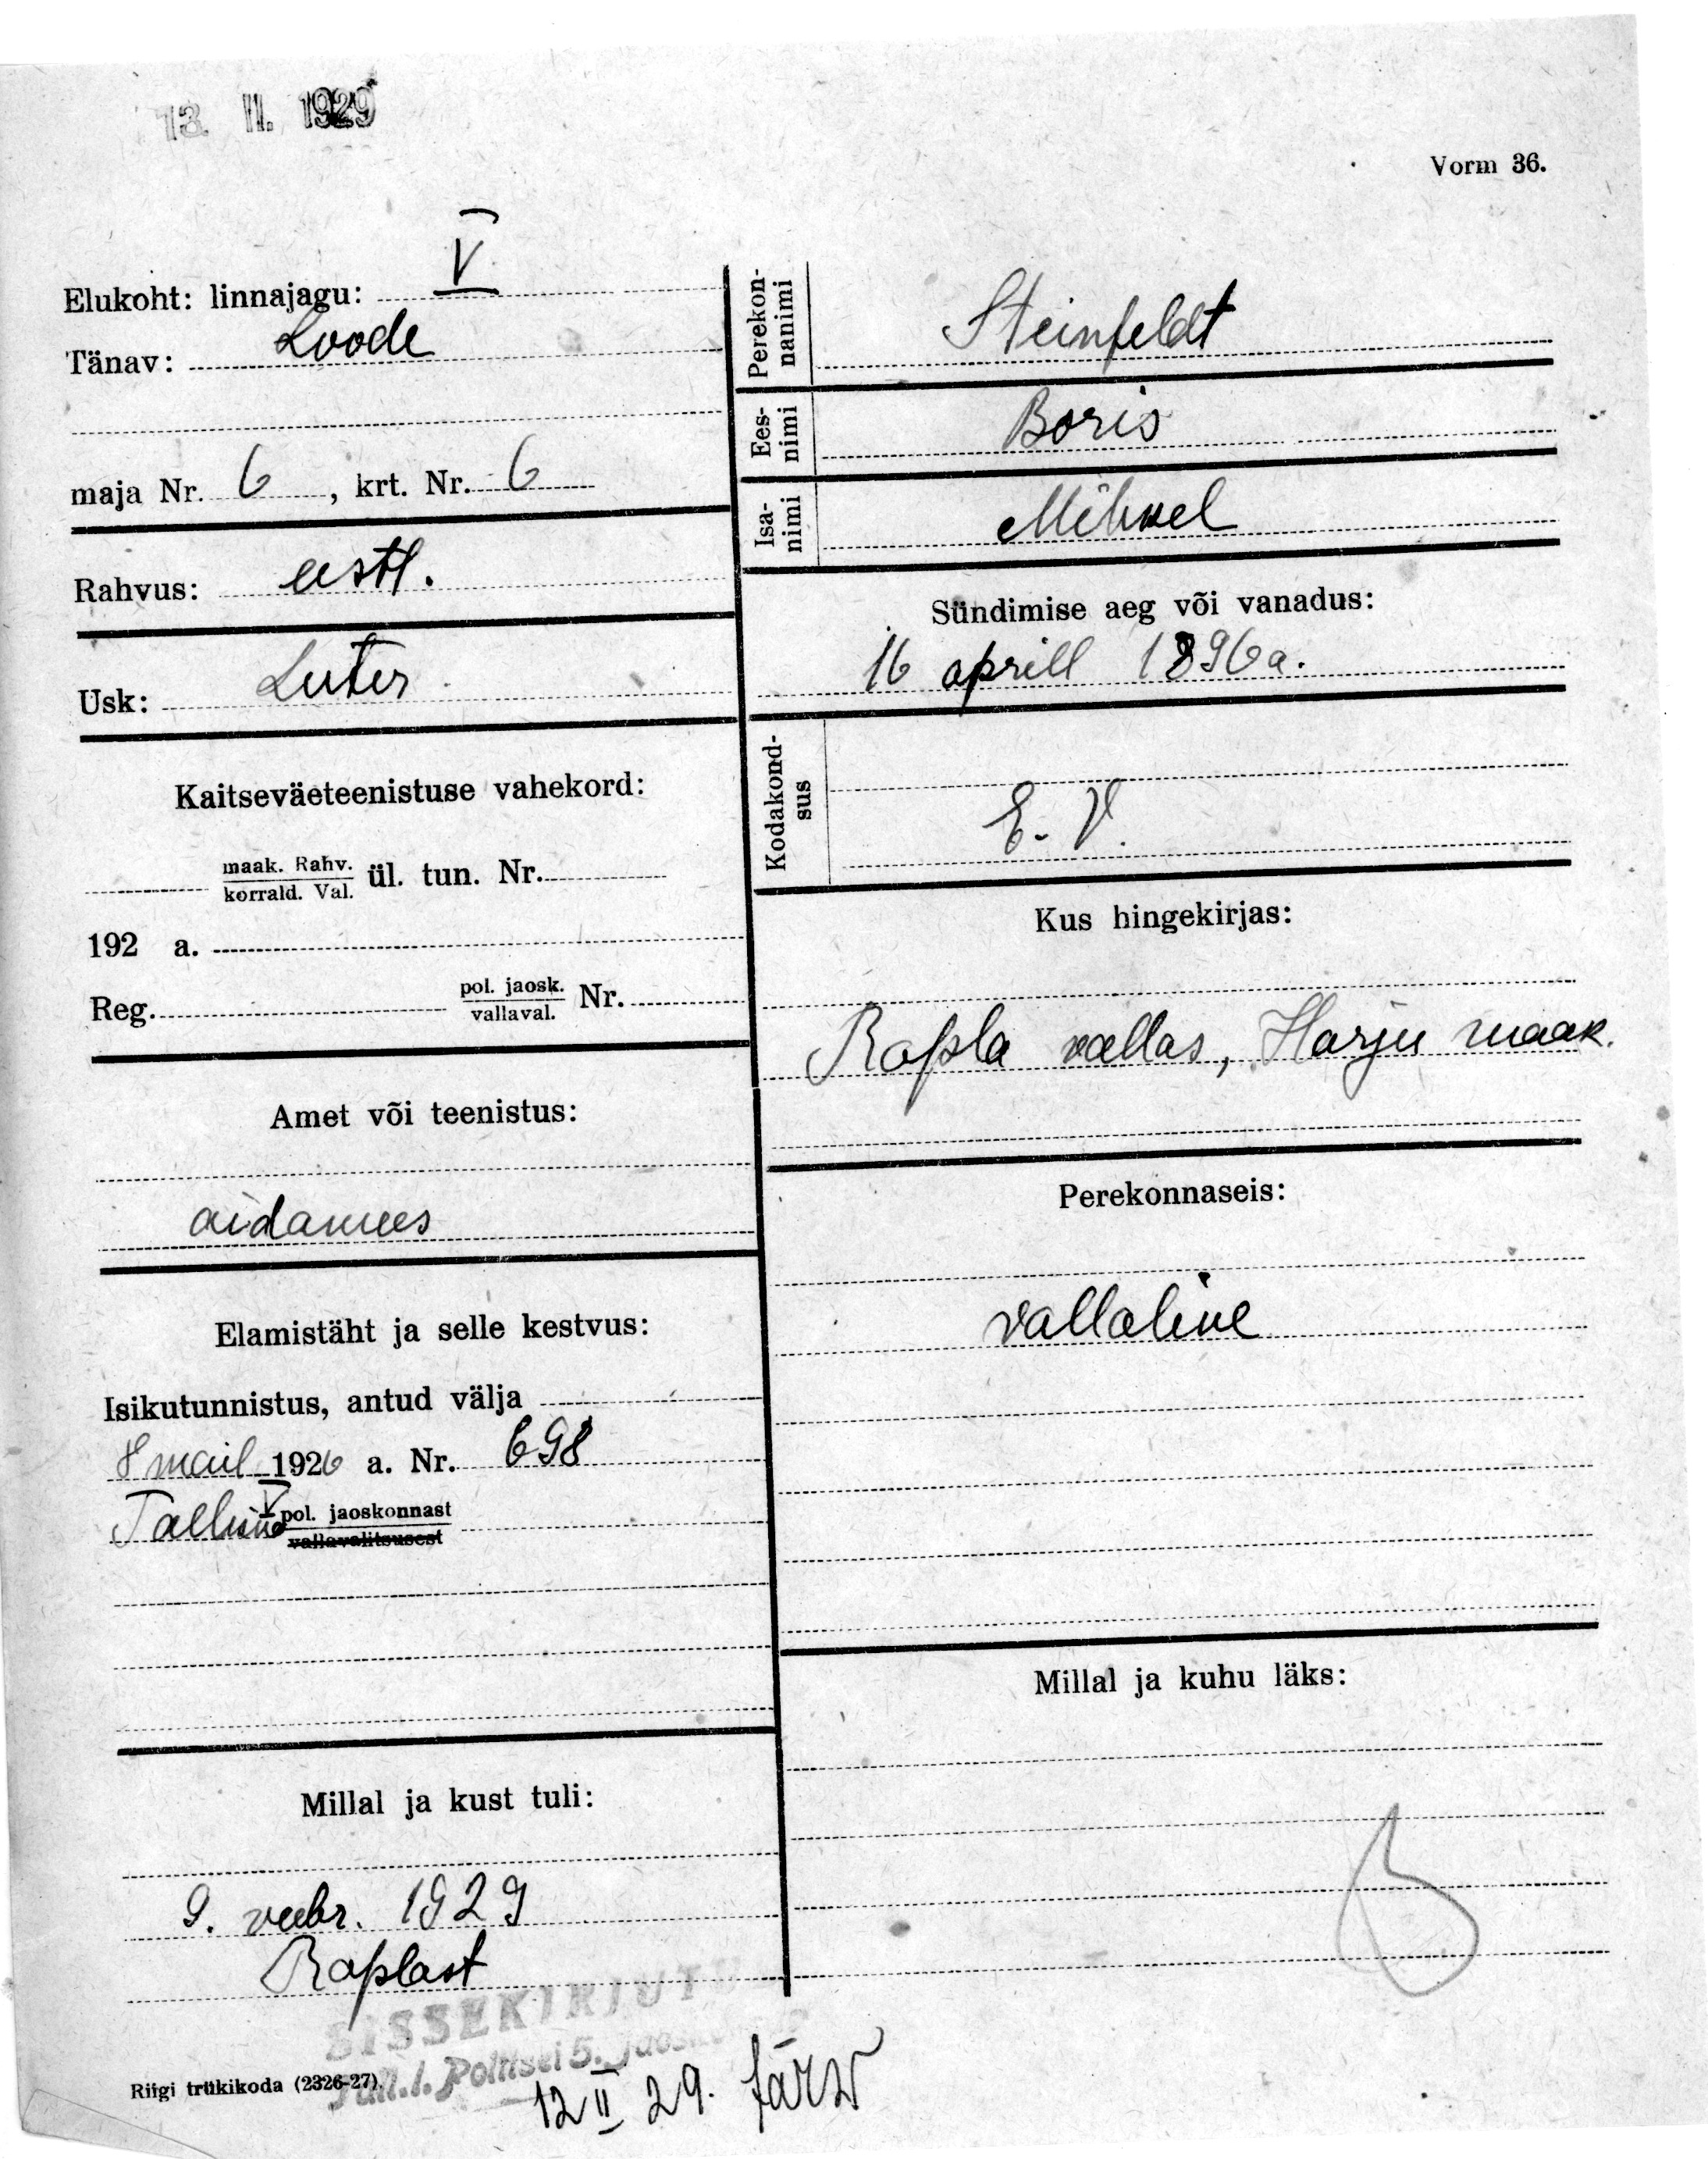 13. II. 1929
Vorm 36.
Elukoht: linnajagu: V
Tänav: Loode
maja Nr. 6, krt. Nr. 6
Rahvus: eestl.
Usk: Luter
Kaitseväeteenistuse vahekord:
maak. Rahv.
korrald. Val. ül. tun. Nr.
192 a.
Reg. pol. jaosk.
vallaval. Nr.
Amet või teenistus:
aidamees
Elamistäht ja selle kestvus:
Isikutunnistus, antud välja
8 mail 1926 a. Nr. 698
Tallinna V pol. jaoskonnast
vallavalitsusest
Millal ja kust tuli:
9. veebr. 1929
Raplast
Perekonnanimi Steinfeldt
Eesnimi Boris
Isanimi Mihkel
Sündimise aeg või vanadus:
16 aprill 1896 a.
Kodakondsus
E. V.
Kus hingekirjas:
Rapla vallas, Harju maak.
Perekonnaseis:
vallaline
Millal ja kuhu läks:
SISSEKIRJUTU
Tall. l. Politsei 5. jaos
Riigi trükikoda (2326-27).
12 II 29. Järw